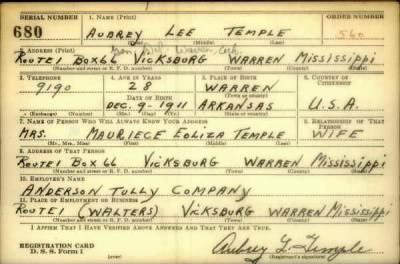 SERIAL NUMBER 1. NAME (Print) ORDER NUMBER
680 AUBREY LEE TEMPLE 560
(First) (Middle) (Last)
2. ADDRESS (Print)
ROUTE 1 BOX 66 VICKSBURG WARREN MISSISSIPPI
(Number and street or R. F. D. number) (Town) (County) (State)
3. TELEPHONE 4. AGE IN YEARS 5. PLACE OF BIRTH 6. COUNTRY OF CITIZENSHIP
9190 28 WARREN
DATE OF BIRTH (Town or county)
DEC. 9 - 1911 ARKANSAS U.S.A.
(Exchange) (Number) (Mo.) (Day) (Yr.) (State or country)
7. NAME OF PERSON WHO WILL ALWAYS KNOW YOUR ADDRESS 8. RELATIONSHIP OF THAT PERSON
MRS. MAURIECE EOLIZA TEMPLE WIFE
(Mr., Mrs., Miss) (First) (Middle) (Last)
9. ADDRESS OF THAT PERSON
ROUTE 1 BOX 66 VICKSBURG WARREN MISSISSIPPI
(Number and street or R. F. D. number) (Town) (County) (State)
10. EMPLOYER'S NAME
ANDERSON TULLY COMPANY
11. PLACE OF EMPLOYMENT OR BUSINESS
ROUTE 1 (WALTERS) VICKSBURG WARREN MISSISSIPPI
(Number and street or R. F. D. number) (Town) (County) (State)
I AFFIRM THAT I HAVE VERIFIED ABOVE ANSWERS AND THAT THEY ARE TRUE.
REGISTRATION CARD
D. S. S. Form 1 (over) Aubrey L. Temple
(Registrant's signature)